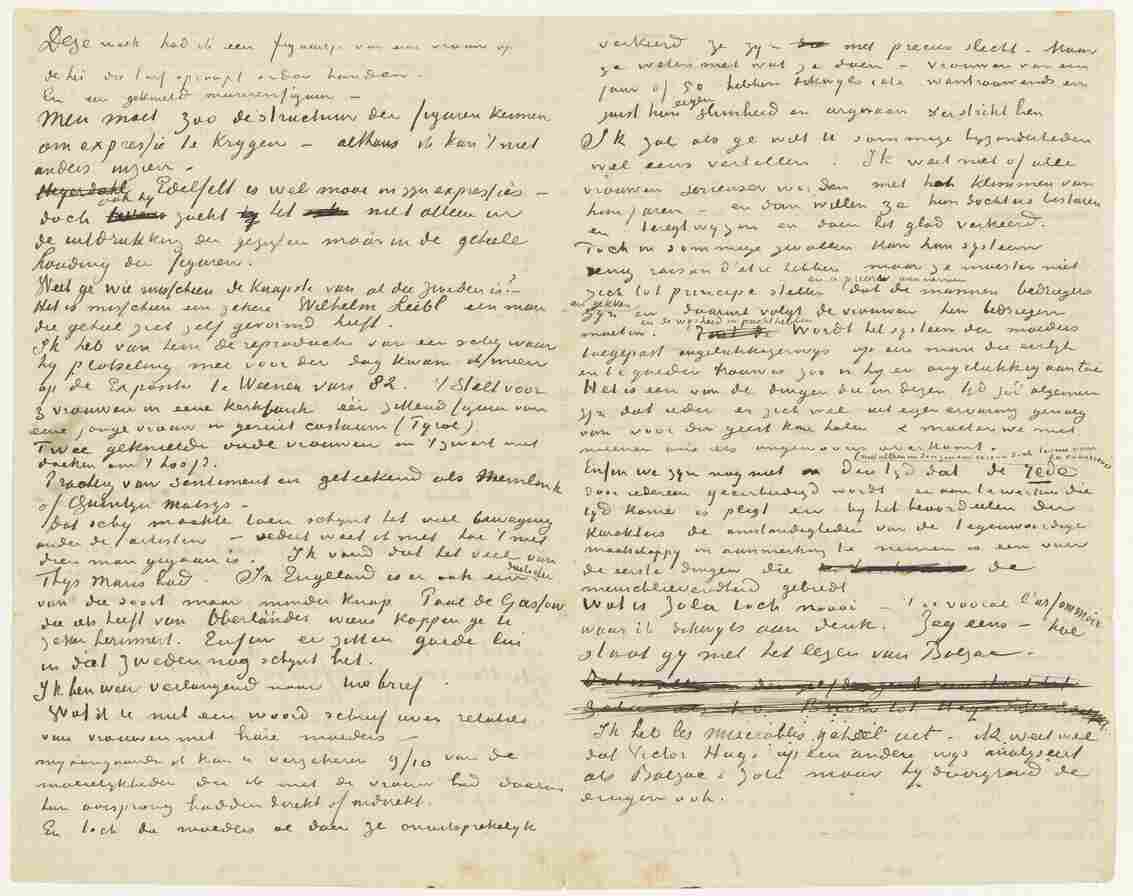 Deze week had ik een figuurtje van een vrouw op
de hei die turf opraapt onder handen.
En een geknield mannenfiguur –
Men moet zoo de structuur der figuren kennen
om expressie te krygen – althans ik kan 't niet
anders inzien –
Heyerdahl Edelfelt is wel mooi in zyn expressies –
doch ook hy zoekt het niet alleen in
de uitdrukking der gezigten maar in de geheele
houding der figuren.
Weet ge wie misschien de knapste van al die Zweden is? –
Het is misschien een zekere Wilhelm Leibl een man
die geheel zich zelf gevormd heeft.
Ik heb van hem de reproductie van een schy waar
hy plotseling mee voor den dag kwam ik meen
op de Expositie te Weenen van 82. 't Stelt voor
3 vrouwen in eene kerkbank één zittend figuur van
eene jonge vrouw in geruit costuum (Tyrol)
Twee geknielde oude vrouwen in 't zwart met
doeken om 't hoofd.
Prachtig van sentiment en geteekend als Memlinck
of Quinten Matsys –
Dat schy maakte toen schynt het veel beweging
onder de artisten – sedert weet ik niet hoe 't met
dien man gegaan is Ik vond dat het veel van
Thys Maris had. In Engelland is er ook een duitscher
van die soort maar minder knap Paul de Gassow
die iets heeft van Oberländer wiens koppen ge U
zeker herinnert. Enfin er zitten goede lui
in dat Zweden nog schynt het.
Ik ben weer verlangend naar Uw brief.
Wat ik U met een woord schreef over relaties
van vrouwen met hare moeders –
my aangaande ik kan U verzekeren 9/10 van de
moeielykheden die ik met de vrouw had daarin
hun oorsprong hadden direkt of indirekt.
En toch die moeders al doen ze onuitsprekelyk
verkeerd ze zyn niet precies slecht. Maar
ze weten niet wat ze doen – vrouwen van een
jaar of 50 hebben dikwyls iets wantrouwends en
juist hun eigen slimheid en argwaan verstrikt hen
Ik zal als ge wilt U sommige byzonderheden
wel eens vertellen. Ik weet niet of alle
vrouwen serieuser worden met het klimmen van
hun jaren – en dan willen ze hun dochters besturen
en teregtwyzen en doen het glad verkeerd.
Toch in sommige gevallen kan hun systeem
eenig raison d'etre hebben maar ze moesten niet
zich tot principe stellen en à priori aannemen dat de mannen bedriegers
en gekken zyn en daaruit volgt de vrouwen hen bedriegen
moeten. en de wysheid in pacht hebben Wordt het systeem der moeders
toegepast ongelukkigerwys op een man die eerlyk
en te goeder trouw is zoo is hy er ongelukkig aan toe
Het is een van de dingen die in dezen tyd zoo algemeen
zyn dat ieder er zich wel uit eigen ervaring genoeg
van voor den geest kan halen & moeten we niet
meenen iets ons ongewoons overkomt.
Enfin we zyn nog niet in den tyd dat de rede
door iedereen geeerbiedigd wordt en aan te werken die
tyd kome is pligt en by het beoordeelen der
karakters de omstandigheden van de tegenwoordige
maatschappy in aanmerking te nemen is een van
de eerste dingen die de
menschlievendheid gebiedt
Wat is Zola toch mooi – 't is vooral l'assommoir
waar ik dikwyls aan denk. Zeg eens – hoe
staat gy met het lezen van Balzac –
Ik heb les misérables geheel uit. – Ik weet wel
dat Victor Hugo op een andere wys analyseert
als Balzac & Zola maar hy doorgrond de
dingen ook.